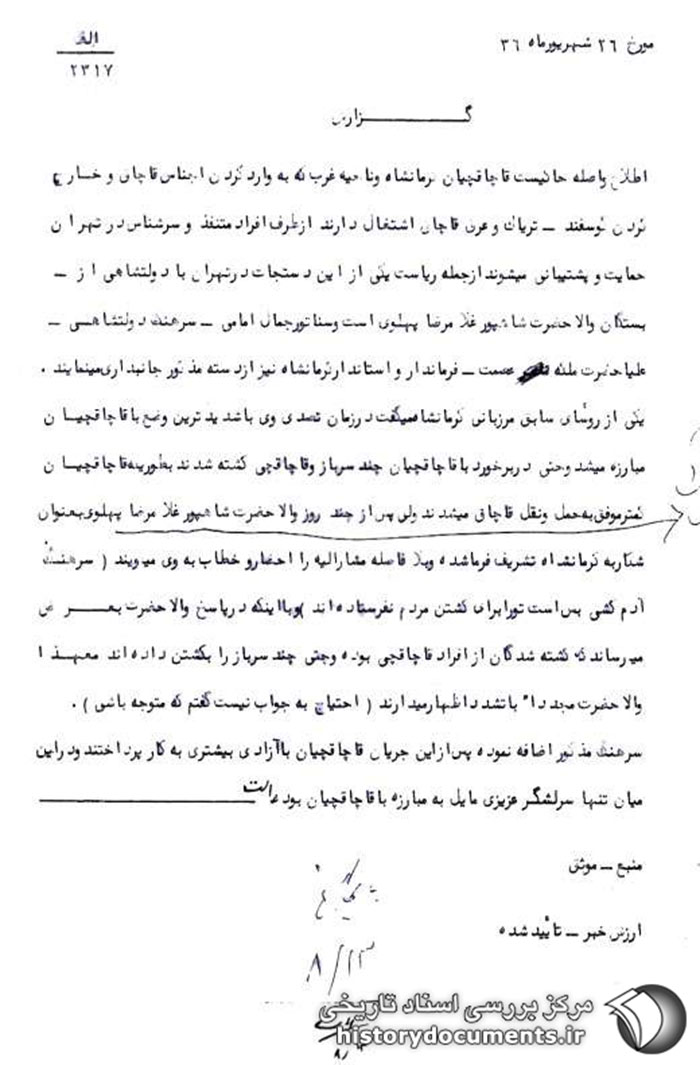 الف
۲۳۱۷
مورخ ۲۶ شهریورماه ۳۶
گزارش
اطلاع واصله حاکیست قاچاقچیان کرمانشاه وناحیه غرب که به وارد کردن اجناس قاچاق و خارج
کردن گوسفند – تریاک وعرق قاچاق اشتغال دارند ازطرف افراد متنفذ و سرشناس در تهران
حمایت و پشتیبانی میشوند ازجمله ریاست یکی از این دستجات درتهران با دولتشاهی از –
بستگان والا حضرت شاهپور غلامرضا پهلوی است وسناتور جمال امامی – سرهنگ دولتشاهی –
علیاحضرت ملکه عصمت – فرماندار و استاندار کرمانشاه نیز ازدسته مذکور جانبداری مینمایند .
یکی از روسای سابق مرزبانی کرمانشاه میگفت درزمان تصدی وی با شدیدترین وضع با قاچاقچیان
مبارزه میشد وحتی دربرخورد با قاچاقچیان چند سرباز وقاچاقچی کشته شدند بطوریکه قاچاقچیان
کمتر موفق به حمل ونقل قاچاق میشدند ولی پس از چند روز والا حضرت شاهپور غلامرضا پهلوی بعنوان
شکار به کرمانشاه تشریف فرما شده وبلا فاصله مشارالیه را احضار و خطاب به وی میگویند ( سرهنگ
آدم کشی بس است تورا برای کشتن مردم نفرستاده اند ) وبا اینکه درپاسخ والا حضرت بعرض
میرساند که کشته شدگان از افراد قاچاقچی بوده وحتی چند سرباز را بکشتن داده اند معهذا
والا حضرت مجدداً باتشدد اظهار میدارند ( احتیاج به جواب نیست گفتم که متوجه باشی ) .
سرهنگ مذکور اضافه نموده پس از این جریان قاچاقچیان با آزادی بیشتری به کار پرداختند ودراین
میان تنها سرلشگر عزیزی مایل به مبارزه با قاچاقچیان بوده است
منبع – موثق
ارزش خبر – تأیید شده
۸/۲۳
مرکز بررسی اسناد تاریخی
historydocuments.ir